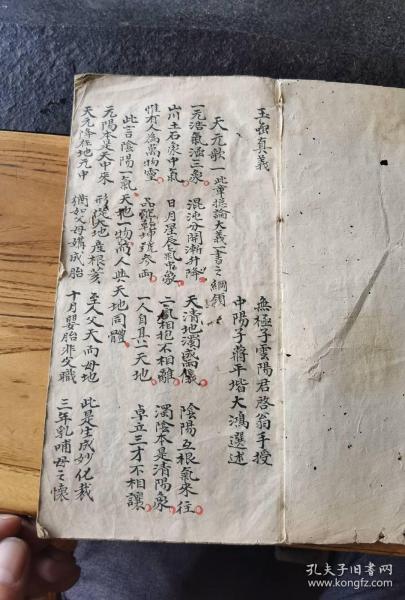 玉函真義
無極子雲陽君啓翁手授
中陽子蔣平堦大鴻選述
天元歌一 此章總論大義一書之綱領
一元浩氣涵三象 混沌分開漸升降 天清地濁成兩儀 陰陽互根氣來往
山川土石象中氣 日月星辰氣中象 二氣相抱不相離 濁陰本是清陽象
惟有人為萬物靈 品配乾坤號参両 一人自具一天地 卓立三才不相讓
此言陰陽一氣天地一物而人與天地同體
元陽本是天中來 形從大地產根荄 至人父天而母地 此是生成妙化裁
天元降在地元中 猶如父母媾成胎 十月嬰胎非父職 三年乳哺母之懷
孔夫子旧书网
www.kongfz.com